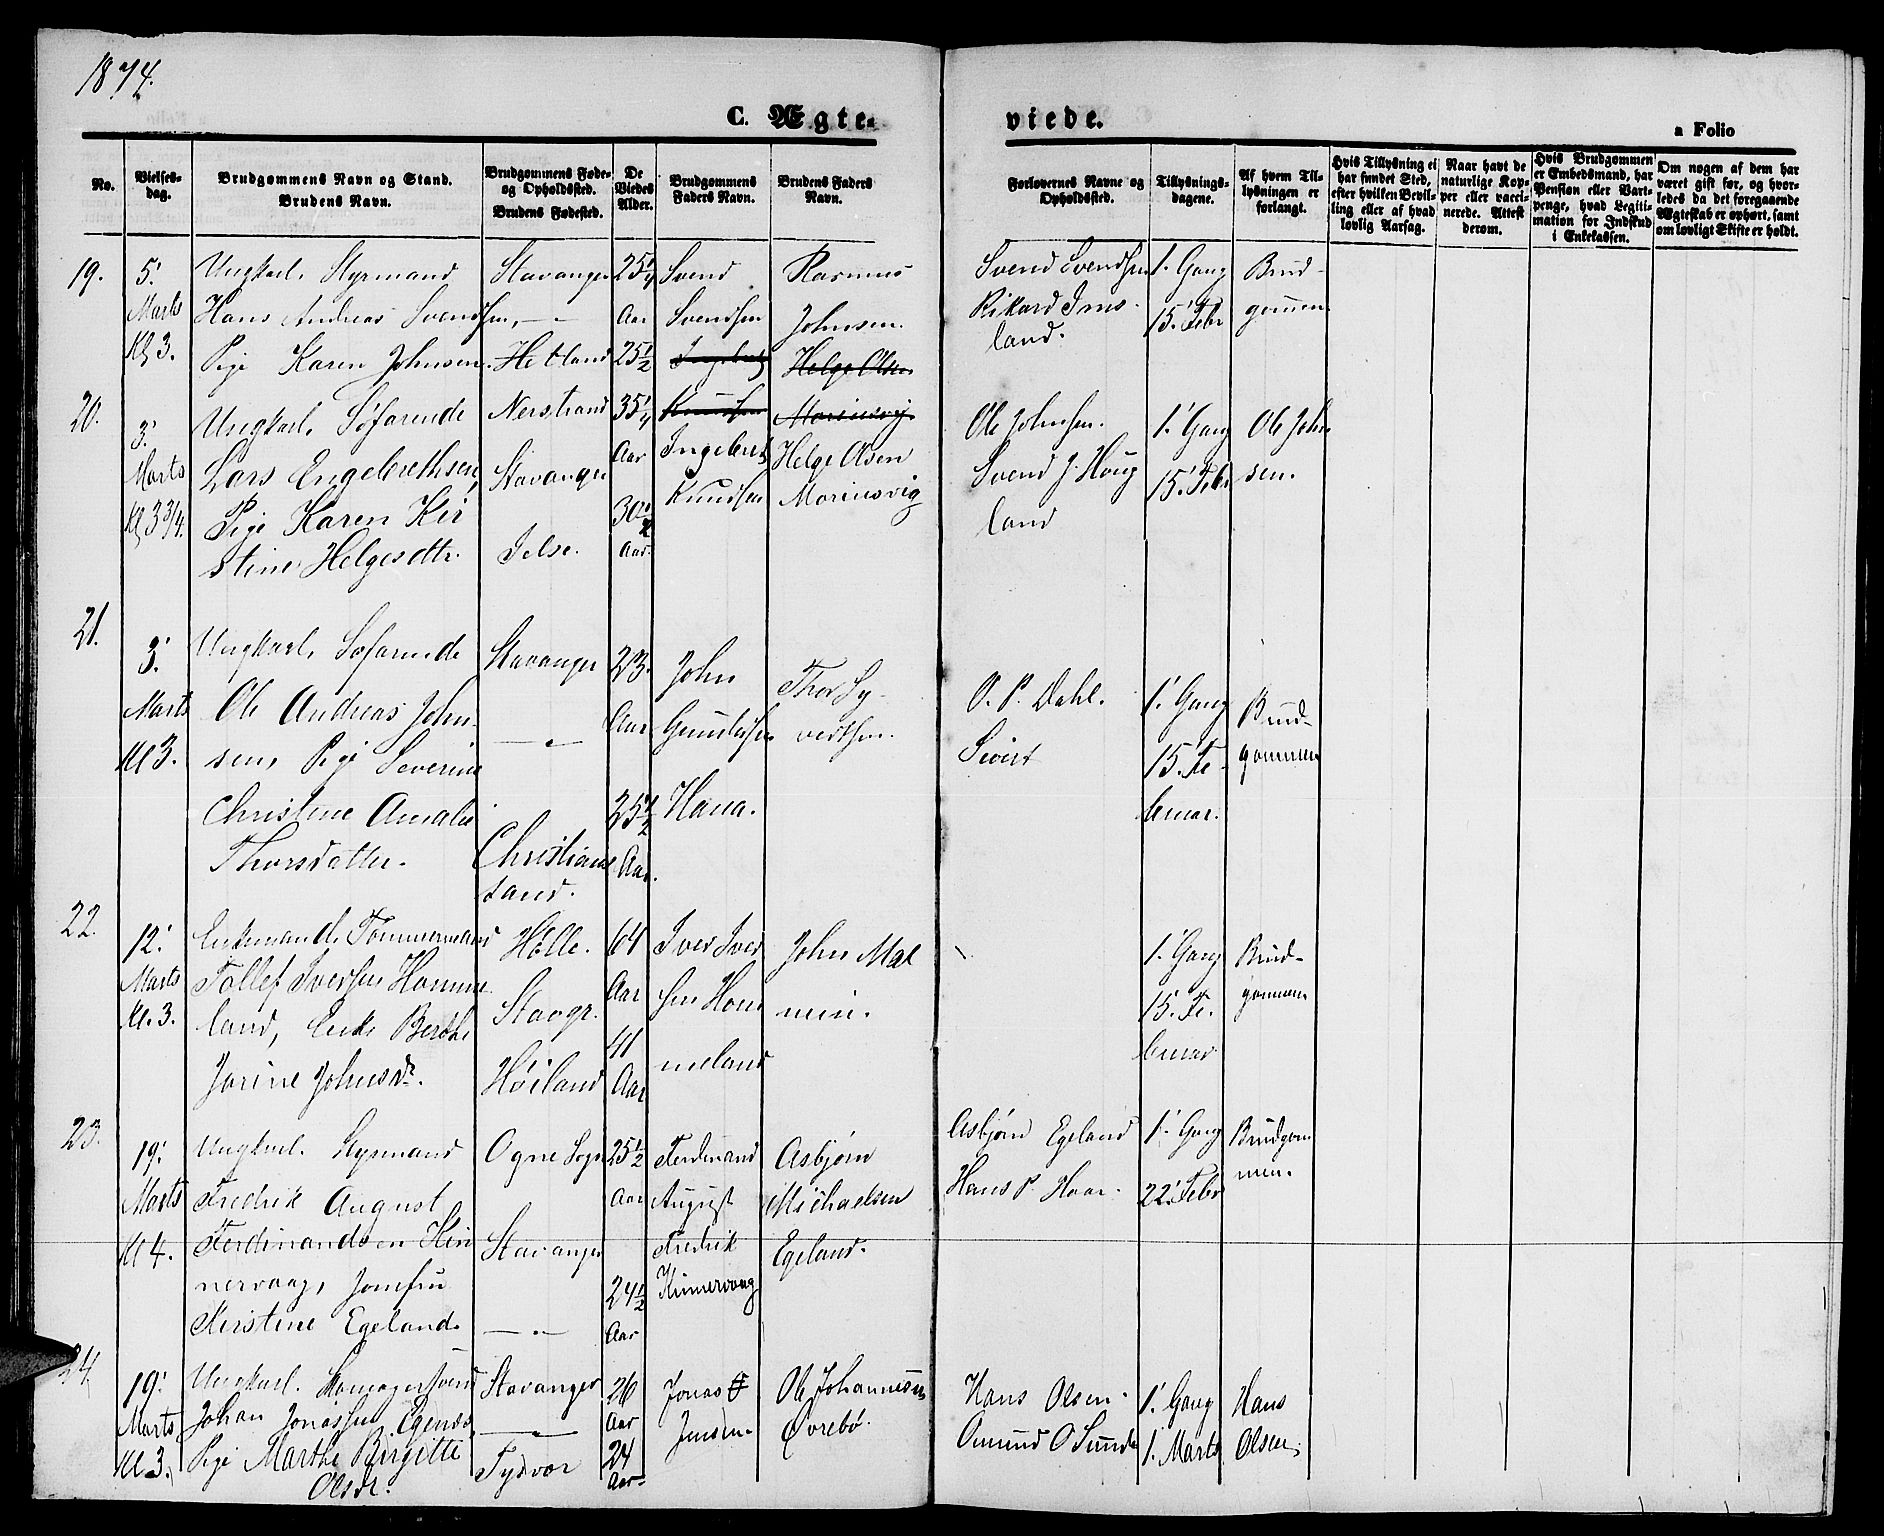 1874.
C. Ægte-
viede.
a Folio
No.
Vielses-
dag.
Brudgommens Navn og Stand.
Brudens Navn.
Brudgommens Føde-
og Opholdssted.
Brudens Fødested.
De
Viedes
Alder.
Brudgommens
Faders Navn.
Brudens Faders
Navn.
Forlovernes Navne og
Opholdssted.
Tillysnings-
dagene.
Af hvem Til-
lysningen er
forlangt.
Hvis Tillysning ei
har fundet Sted,
efter hvilken Bevil-
ling eller af hvad
lovlig Aarsag.
Naar havt de
naturlige Kop-
per eller vacci-
nerede. Attest
derom.
Hvis Brudgommen
er Embedsmand, har
Pension eller Vart-
penge, hvad Legiti-
mation for Indskud
i Enkekassen.
Om nogen af dem har
været gift før, og hvor-
ledes da det foregaaende
Ægteskab er ophørt, samt
om lovligt Skifte er holdt.
19.
5'
Marts
Kl 3.
Ungkarl, Styrmand
Hans Andreas Svendsen,
Pige Karen Johnsen.
Stavanger
— " —
Hetland
25 1/4
Aar
25 1/2
Svend
Svendsen
Rasmus
Johnsen.
Svend Svendsen
Rikard Ims-
land.
1' Gang
15' Febr
Brud-
gommen
20.
3'
Marts
Kl 3 3/4.
Ungkarl, Søfarende
Lars Engebrethsen,
Pige Karen Kir
stine Helgesdtr.
Nerstrand
Stavanger
Jelse.
35 1/4
Aar
30 1/2
Aar.
Ingebret
Knudsen
Ingebret
Knudsen
Helge Olsen
Marinesvig
Helge Olsen
Marinesvig
Ole Johnsen.
Svend J. Houg
land
1' Gang
15' Febr
Ole John
sen.
21.
3'
Marts
Kl 3.
Ungkarl, Søfarende
Ole Andreas John-
sen, Pige Severine
Christine Amalie
Thorsdatter.
Stavanger
— " —
Christians
sand.
23.
Aar
25 1/2
Aar.
John
Gundersen
Hana.
Thor Sy-
vertsen.
O. P. Dahl.
Sivert
1' Gang
15. Fe-
bruar.
Brud-
gommen
22.
12'
Marts
Kl. 3.
Enkemand, Tømmermand
Tollef Iversen Homme
land, Enke Berthe
Jorine Johnsdr.
Hølle.
Stavgr.
Høiland
64
Aar
41
Aar
Iver Iver
sen Hom
meland
John Mal
min.
1' Gang
15. Fe.
bruar
Brud-
gommen
23.
19'
Marts
Kl 4.
Ungkarl. Styrmand
Fredrik August
Ferdinandsen Kin
nervaag, Jomfru
Kirstine Egeland.
Ogne Sogn
Stavanger
— " —
25 1/2
Aar
24 1/2
Aar
Ferdinand
August
Fredrik
Kinnervaag
Asbjørn
Michaelsen
Egeland.
Asbjørn Egeland
Hans P. Haar.
1' Gang
22' Febr
Brudgom
men.
24.
19'
Marts
Kl 3.
Ungkarl. Skomagersvend
Johan Jonassen Egenæs,
Pige Marthe Birgitte
Olsdr.
Stavanger
— " —
Tysvær
26
Aar
24
Aar
Jonas
Jensen.
Ole Johannesen
Øvrebø.
Hans Olsen.
Omund O Sunde
1' Gang
1' Marts
Hans
Olsen.